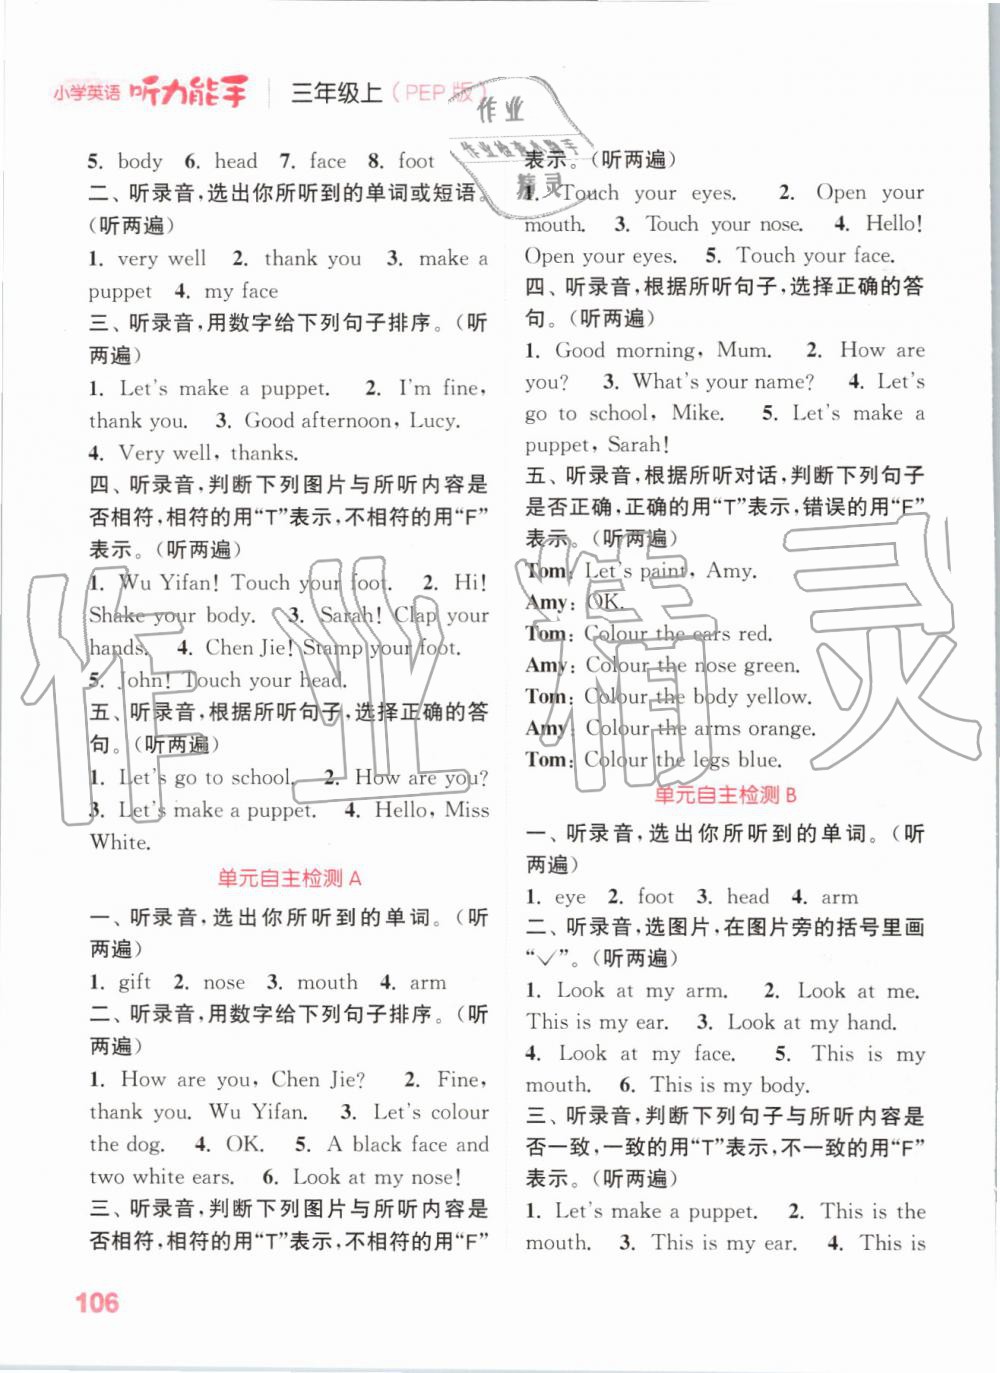 小学英语 听力能手 三年级上（PEP 版）
5. body 6. head 7. face 8. foot
二、听录音，选出你所听到的单词或短语。
（听两遍）
1. very well 2. thank you 3. make a
puppet 4. my face
三、听录音，用数字给下列句子排序。（听
两遍）
1. Let's make a puppet. 2. I'm fine,
thank you. 3. Good afternoon, Lucy.
4. Very well, thanks.
四、听录音，判断下列图片与所听内容是
否相符，相符的用“T”表示，不相符的用“F”
表示。（听两遍）
1. Wu Yifan! Touch your foot. 2. Hi!
Shake your body. 3. Sarah! Clap your
hands. 4. Chen Jie! Stamp your foot.
5. John! Touch your head.
五、听录音，根据所听句子，选择正确的答
句。（听两遍）
1. Let's go to school. 2. How are you?
3. Let's make a puppet. 4. Hello, Miss
White.
单元自主检测 A
一、听录音，选出你所听到的单词。（听
两遍）
1. gift 2. nose 3. mouth 4. arm
二、听录音，用数字给下列句子排序。（听
两遍）
1. How are you, Chen Jie? 2. Fine,
thank you. Wu Yifan. 3. Let's colour
the dog. 4. OK. 5. A black face and
two white ears. 6. Look at my nose!
三、听录音，判断下列图片与所听内容是
否相符，相符的用“T”表示，不相符的用“F”
表示。（听两遍）
1. Touch your eyes. 2. Open your
mouth. 3. Touch your nose. 4. Hello!
Open your eyes. 5. Touch your face.
四、听录音，根据所听句子，选择正确的答
句。（听两遍）
1. Good morning, Mum. 2. How are
you? 3. What's your name? 4. Let's
go to school, Mike. 5. Let's make a
puppet, Sarah!
五、听录音，根据所听对话，判断下列句子
是否正确，正确的用“T”表示，错误的用“F”
表示。（听两遍）
Tom: Let's paint, Amy.
Amy: OK.
Tom: Colour the ears red.
Amy: Colour the nose green.
Tom: Colour the body yellow.
Amy: Colour the arms orange.
Tom: Colour the legs blue.
单元自主检测 B
一、听录音，选出你所听到的单词。（听
两遍）
1. eye 2. foot 3. head 4. arm
二、听录音，选图片，在图片旁的括号里画
“✓”。（听两遍）
1. Look at my arm. 2. Look at me.
This is my ear. 3. Look at my hand.
4. Look at my face. 5. This is my
mouth. 6. This is my body.
三、听录音，判断下列句子与所听内容是
否一致，一致的用“T”表示，不一致的用“F”
表示。（听两遍）
1. Let's make a puppet. 2. This is the
mouth. 3. This is my ear. 4. This is
106
作业
作业检查小助手
精灵
作业精灵